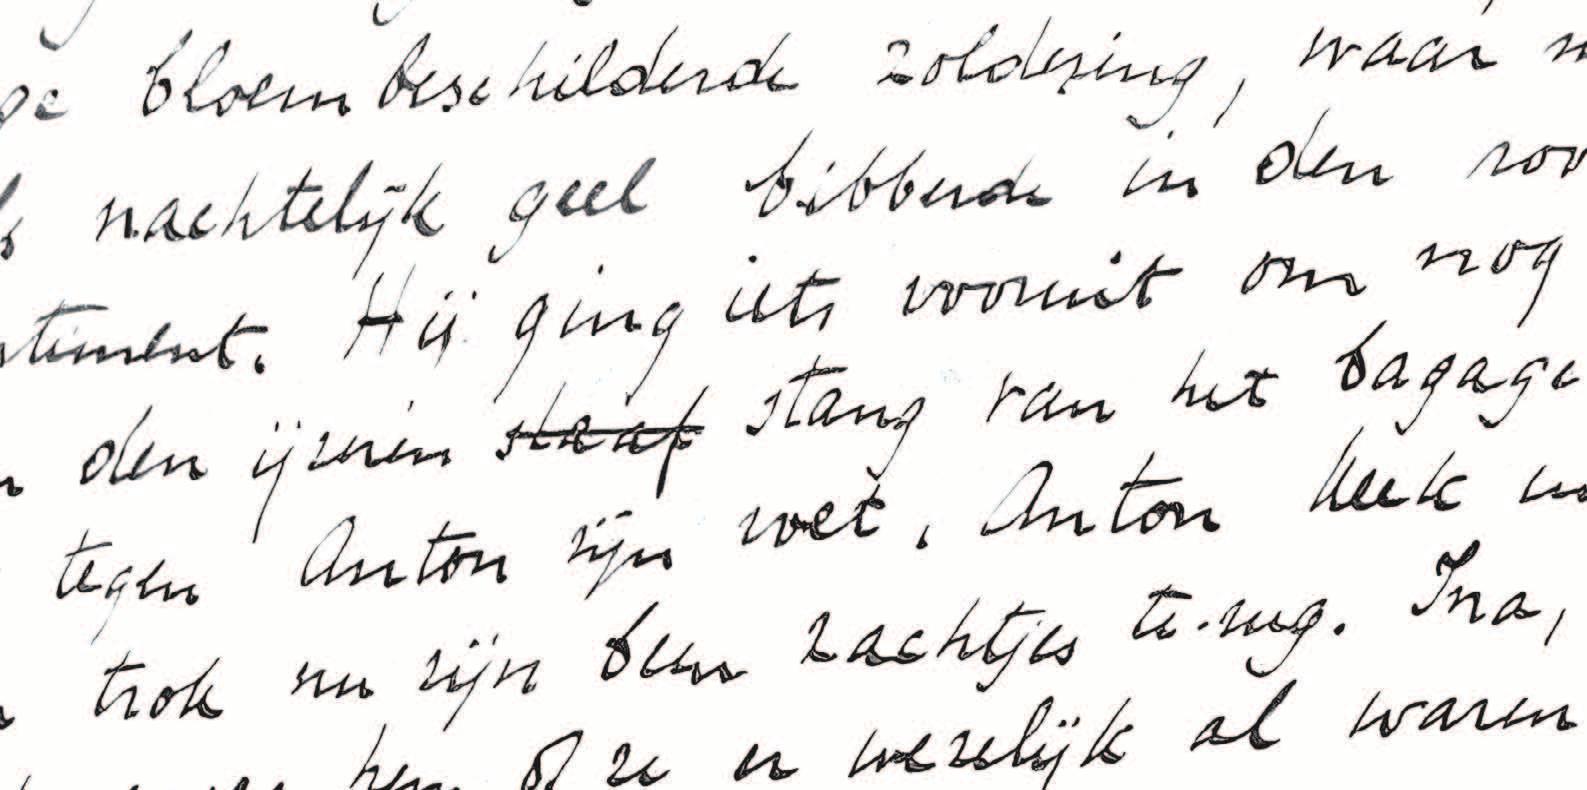 ge bloem beschilderde zoldering, waar
nachtelijk geel bibberde in den
stiment. Hij ging iets vooruit om nog
den ijzeren staaf stang van het bagage
tegen Anton zijn voet. Anton keek
trok nu zijn been zachtjes te.rug. Ina,
of ze er wezelijk al waren